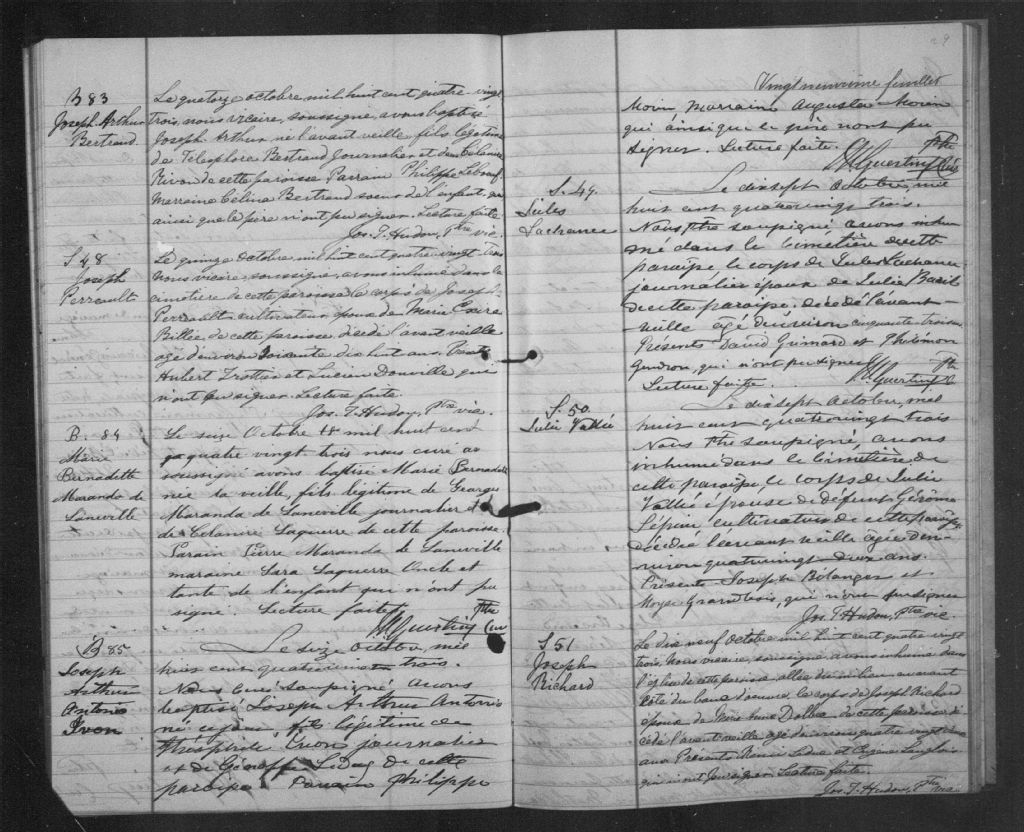 B 83
Joseph Arthur
Bertrand
Le quatorze octobre mil huit cent quatre-vingt
trois, nous vicaire, soussigné, avons baptisé
Joseph Arthur, né l'avant veille, fils légitime
de Télesphore Bertrand journalier et de
de cette paroisse Parrain Philippe Lebeuf
Marraine Célina Bertrand soeur de l'enfant qui
ainsi que le père n'ont pu signer. Lecture faite
Jos. T. Hudon, Ptre vic.
S 48
Joseph
Perreault
Le quinze octobre mil huit cent quatre vingt trois
nous vicaire, soussigné, avons inhumé dans le
cimetière de cette paroisse le corps de Joseph
Perreault cultivateur époux de Marie
de cette paroisse décédé l'avant veille
agé d'environ soixante dix huit ans.
Hubert Trottier et Lucien Douville qui
n'ont pu signer Lecture faite.
Jos. T. Hudon, Ptre vic.
B. 84
Marie
Bernadette
Maranda de
Laneville
Le seize Octobre 18 mil huit cent
quatre vingt trois nous curé
soussigné avons baptisé Marie Bernadette
née la veille, fils légitime de Georges
Maranda de Laneville journalier et
de Célanire Laguerre de cette paroisse
Parain Pierre Maranda de Laneville
maraine Sara Laguerre Oncle et
tante de l'enfant qui n'ont pu
signé. Lecture faite
Ptre
Curé
B 85
Joseph
Arthur
Antonio
Ivon
Le seize octobre, mil
huit cent quatrevingt trois.
Nous Curé soussigné avons
baptisé Joseph Arthur Antonio
né ce jour, fils légitime de
Théophile Ivon journalier
et de Leduc de cette
paroisse. Parain Philippe
29
Vingt neuvième feuillet
Morin Marraine Augusta Morin
qui ainsi que le père nont pu
signer. Lecture faite.
Ptre
Curé
S. 49
Jules
Lachance
Le dixsept Octobre, mil
huit cent quatrevingt trois.
Nous Ptre soussigné avons inhu
mé dans le Cimetière de cette
paroisse le corps de Jules Lachance
journalier époux de Julie Baril
de cette paroisse. décédé l'avant-
veille âgé d'environ cinquante trois ans
Présents David Grimard et Philémon
Gendron, qui n'ont pu signer
Lecture faite.
Ptre
S. 50
Julie Vallée
Le dixsept Octobre, mil
huit cent quatrevingt trois
Nous Ptre soussigné avons
inhumé dans le Cimetière de
cette paroisse le corps de Julie
Vallée épouse de défunt Gérôme
cultivateur de cette paroisse
décédée l'avant veille âgée d'en-
viron quatrevingt deux ans.
Présents Joseph Bélanger et
Moyse Grandbois, qui n'ont pu signer
Jos. T. Hudon, Ptre vic.
S 51
Joseph
Richard
Le dix neuf Octobre mil huit cent quatre vingt
trois, nous vicaire, soussigné, avons inhumé dans
l'église de cette paroisse allée du milieu en avant
côté du banc d'oeuvre, le corps de Joseph Richard
époux de Marie Anne Dolbec de cette paroisse dé
cédé l'avant veille agé d'environ quatre vingt
ans Présents Leduc et Eugène Langlois
qui n'ont pu signer Lecture faite.
Jos. T. Hudon, Ptre vic.